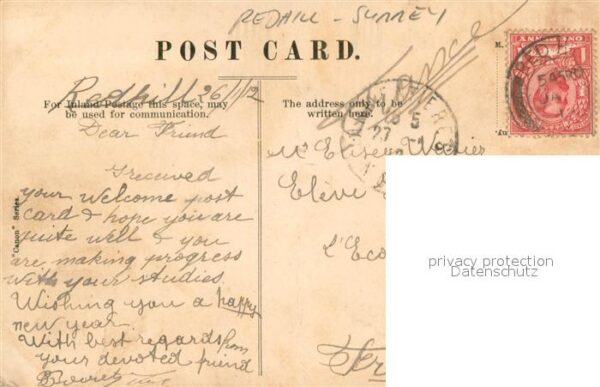 REDHILL - SURREY
POST CARD.
France
Redhill 26/1/12
For Inland Postage this space, may
be used for communication.
The address only to be
written here.
Dear Friend
I received
your welcome post
card & hope you are
quite well & you
are making progress
with your studies.
Wishing you a happy
new year.
With best regards from
your devoted friend
"Canon" Series.
Mr
Elève
L'Eco
privacy protection
Datenschutz